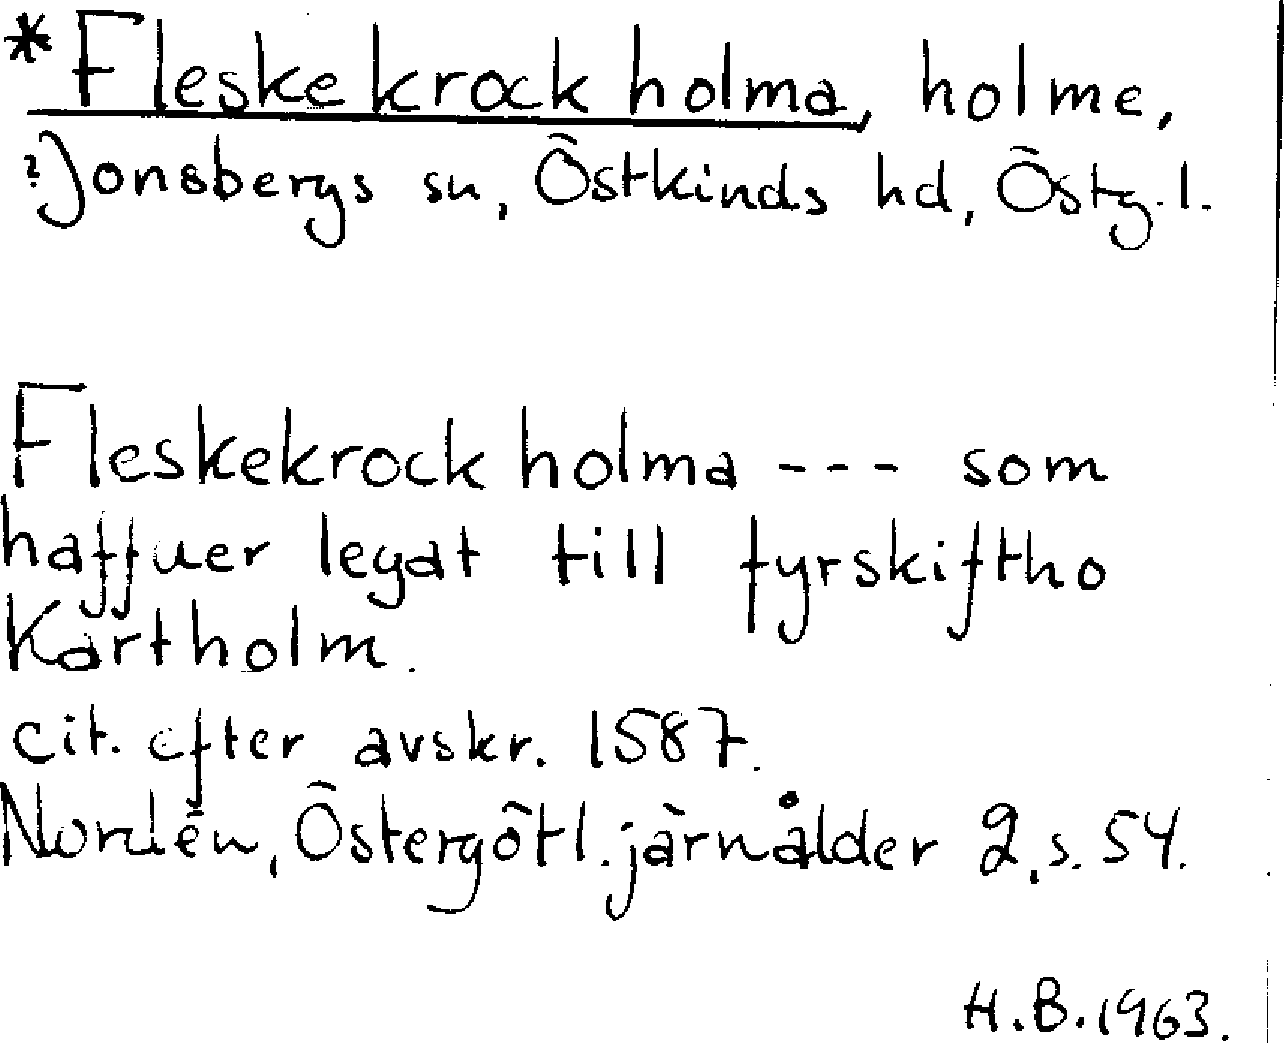 *Fleskekrockholma, holme,
?Jonsbergs sn, Östkinds hd, Östg.l.
Fleskekrockholma --- som
haffuer legat till fyrskiftho
Kartholm.
cit. efter avskr. 1587.
Nordén, Östergötl. järnålder 2, s. 54.
H.B. 1963.